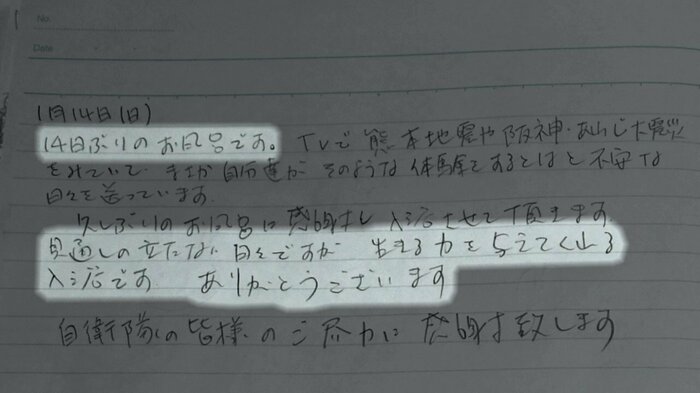 No.
Date
1月14日(日)
14日ぶりのお風呂です。 TVで熊本地震や阪神・あわじ大震災
をみていて まさか自分達が そのような体験をするとはと不安な
日々を送っています。
久しぶりのお風呂に感謝し入浴させて頂きます。
見通しの立たない日々ですが 生きる力を与えてくれる
入浴です。 ありがとうございます
自衛隊の皆様のご尽力に感謝致します